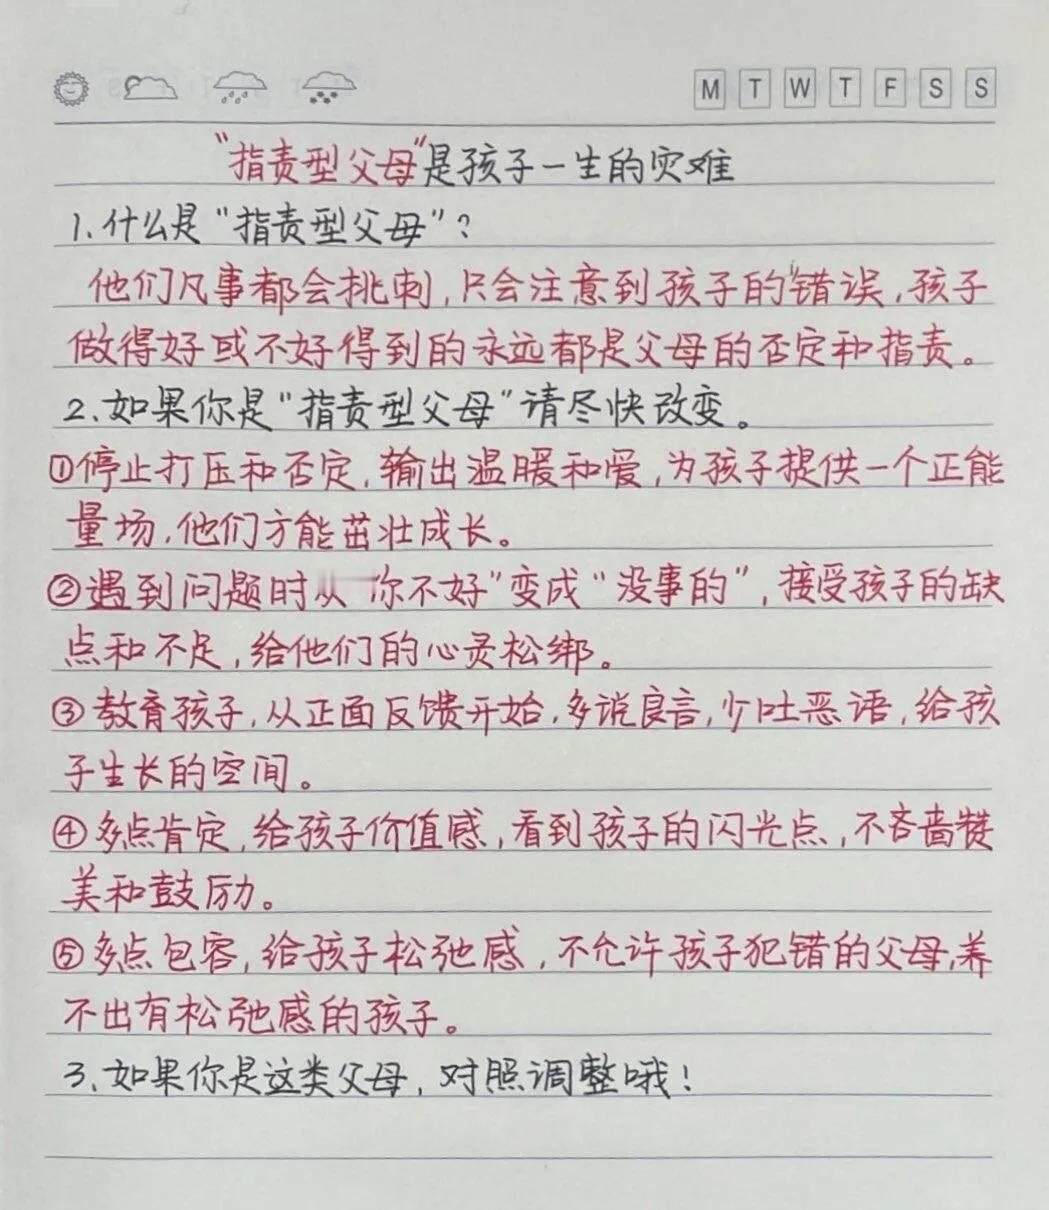 M T W T F S S
“指责型父母”是孩子一生的灾难
1.什么是“指责型父母”?
他们凡事都会挑刺,只会注意到孩子的错误,孩子
做得好或不好得到的永远都是父母的否定和指责。
2.如果你是“指责型父母”请尽快改变。
①停止打压和否定,输出温暖和爱,为孩子提供一个正能
量场,他们方能茁壮成长。
②遇到问题时从 你不好”变成“没事的”,接受孩子的缺
点和不足,给他们的心灵松绑。
③教育孩子,从正面反馈开始,多说良言,少吐恶语,给孩
子生长的空间。
④多点肯定,给孩子价值感,看到孩子的闪光点,不吝啬赞
美和鼓励。
⑤多点包容,给孩子松弛感,不允许孩子犯错的父母,养
不出有松弛感的孩子。
3.如果你是这类父母,对照调整哦!